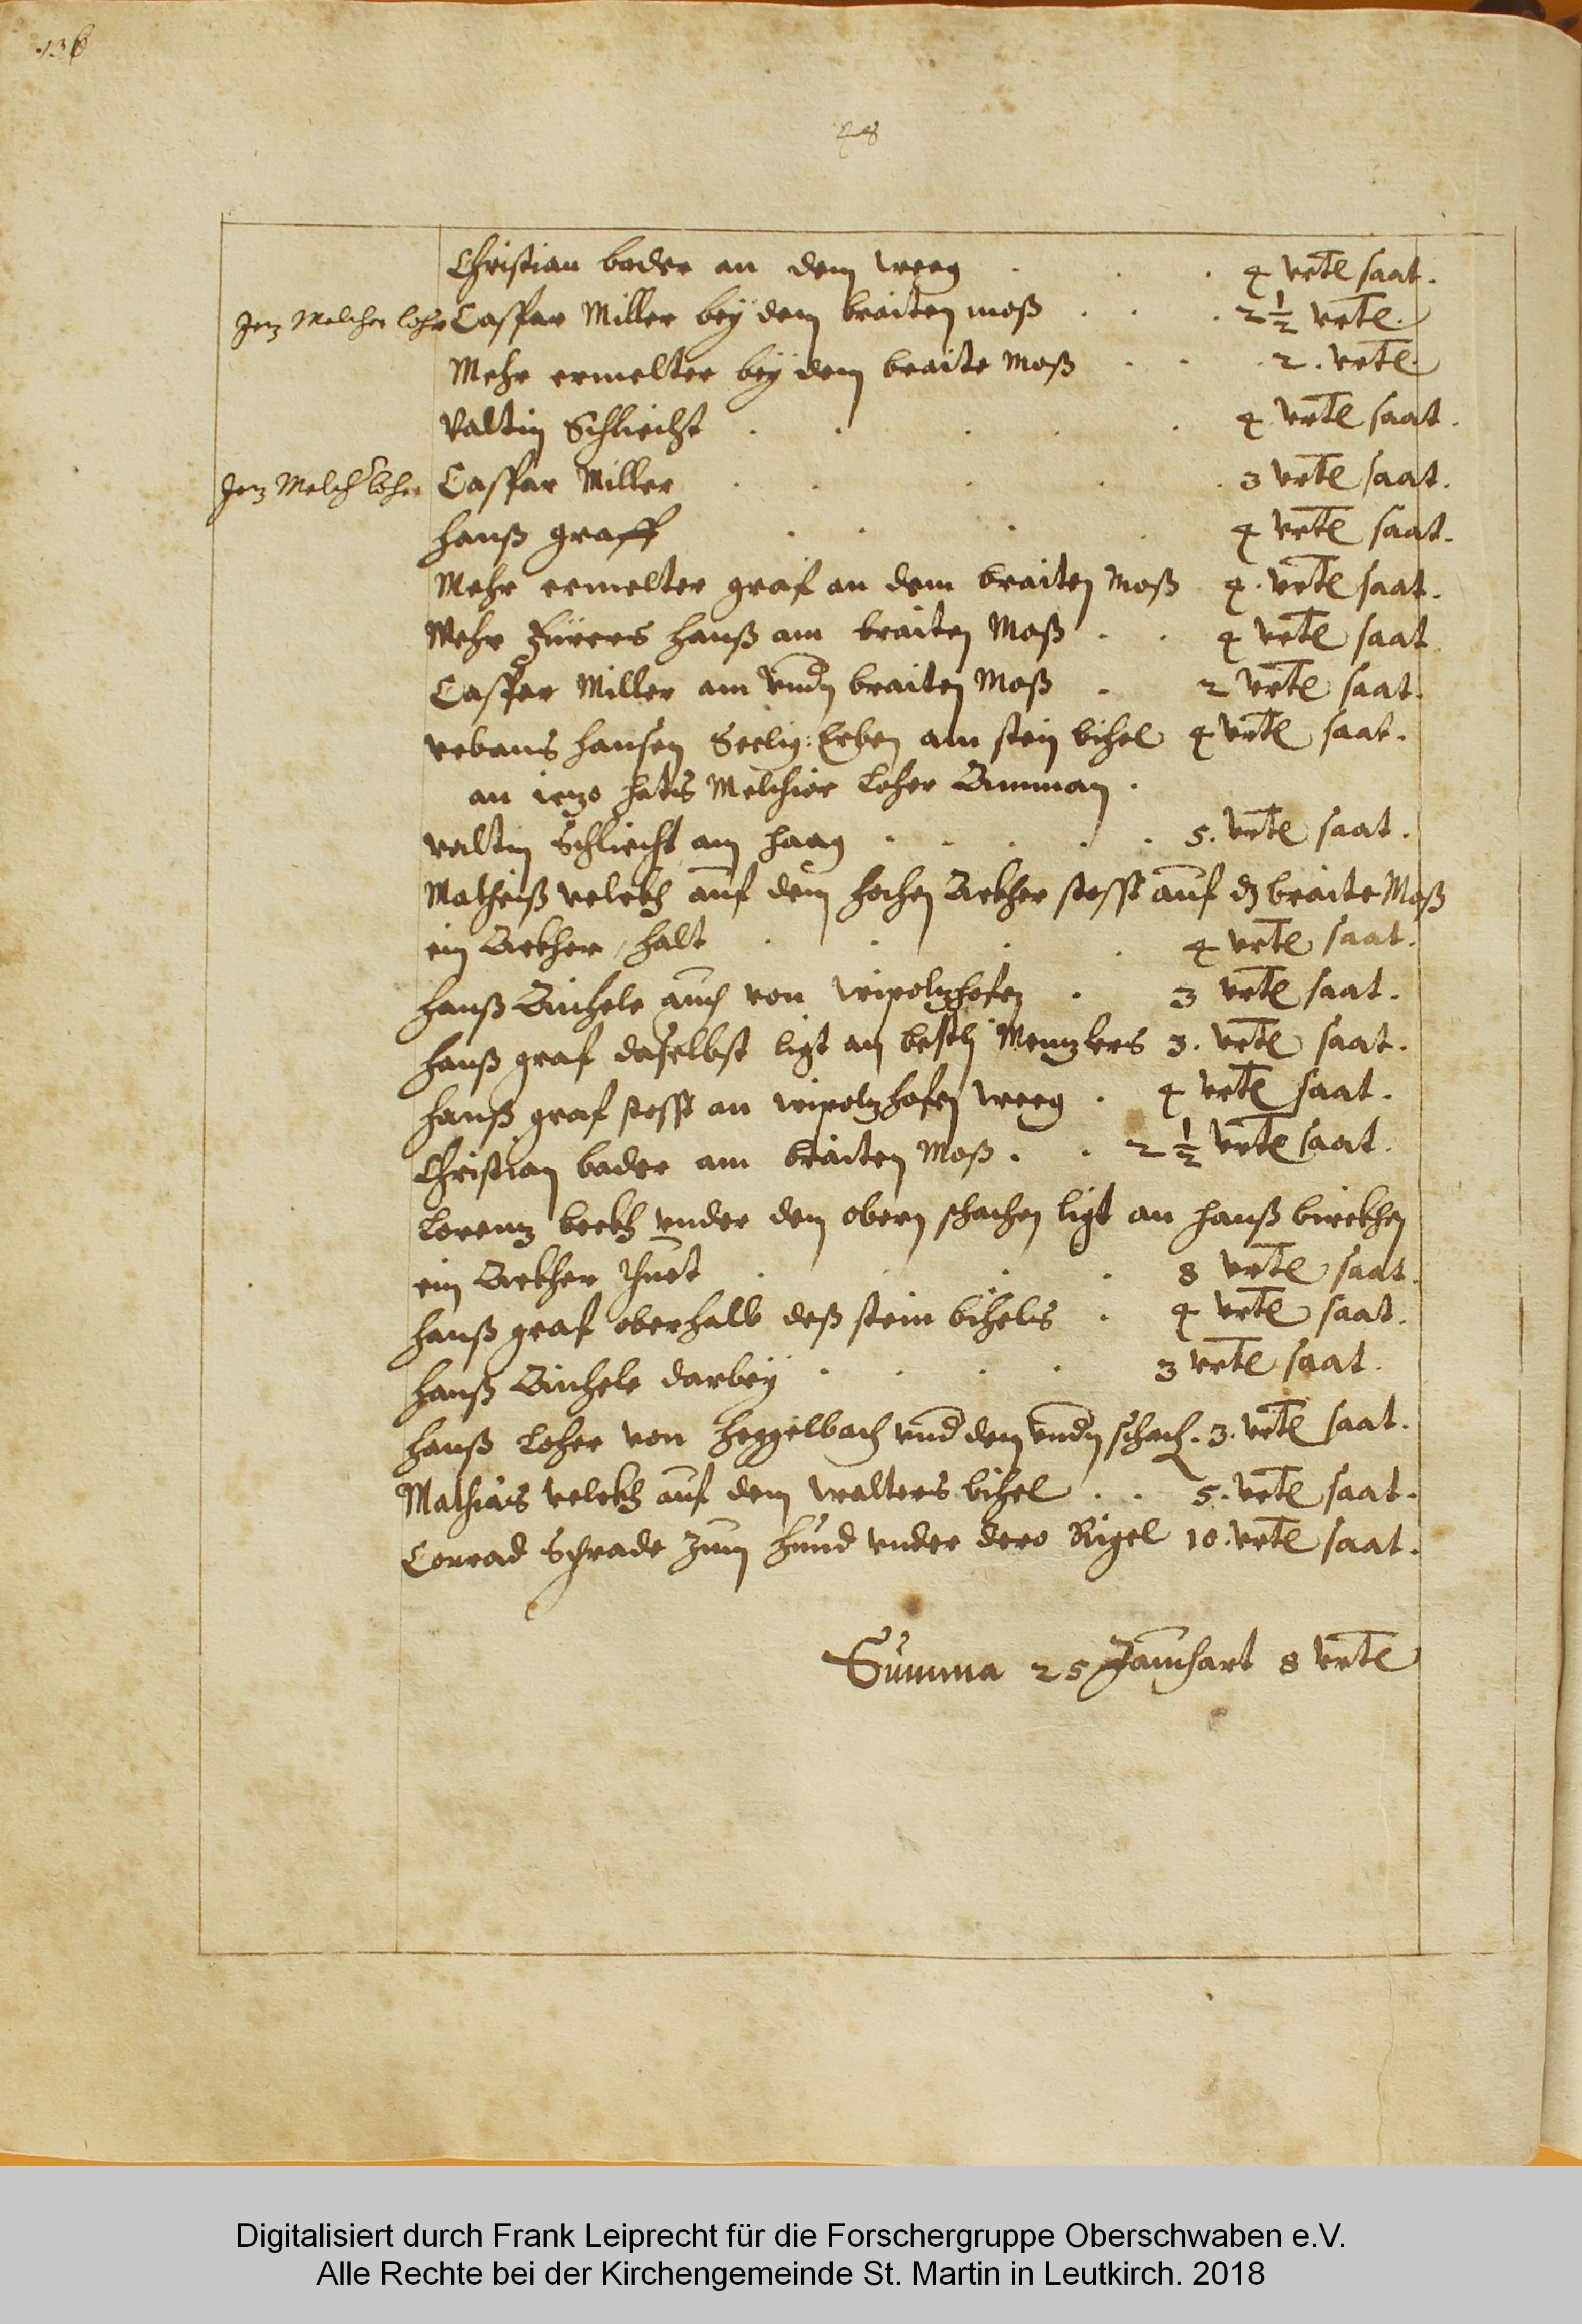 136
48
Christian bader an dem weeg . . . 4 vrtl saat.
Jez Melcher Loher Casspar Miller bey dem braiten moß . . . 2 1/2 vrtl.
Mehr ermelter bey dem braite Moß . . . 2. vrtl.
Valtin Schliecht . . . . . 4 vrtl saat.
Jez Melch Loher Casspar Miller . . . . . 3 vrtl saat.
hanß graff . . . . 4 vrtl saat.
Mehr ermelter graf an dem braiten Moß 4. vrtl saat.
Mehr hanß am braiten Moß . . 4 vrtl saat
Casspar Miller am vndn braiten Moß . 2 vrtl saat.
vrbans hansen Seelig: Erben am stein bihel 4 vrtl saat.
an iezo hats Melchior Loher Amman .
valtin Schliecht am haag . . . . . 5. vrtl saat.
Matheiß velckh auf dem hochen Ackher stosst auf dz braite Moß
ein Ackher, halt . . . . 4 vrtl saat.
hanß Aichele auch von wipolzhofen . 3 vrtl saat.
hanß graf daselbst ligt an Menzlers 3. vrtl saat.
hanß graf stosst an wipolzhofen weeg . 4 vrtl saat.
Christian bader am braiten Moß . . 2 1/2 vrtl saat.
Lorenz beckh vnder dem obern schachen ligt an hanß birckhen
ein Ackher thuet . . . . 8 vrtl saat.
hanß graf oberhalb deß stein bihels . 4 vrtl saat.
hanß Aichele darbey . . . . 3 vrtl saat.
hanß Loher von heggelbach vnd dem vndn schach. 3. vrtl saat.
Mathias velckh auf dem walters bihel . . 5. vrtl saat.
Conrad Schrade zum hund vnder dero Rigel 10. vrtl saat.
Summa 25 Jauchart 8 vrtl
Digitalisiert durch Frank Leiprecht für die Forschergruppe Oberschwaben e.V.
Alle Rechte bei der Kirchengemeinde St. Martin in Leutkirch. 2018